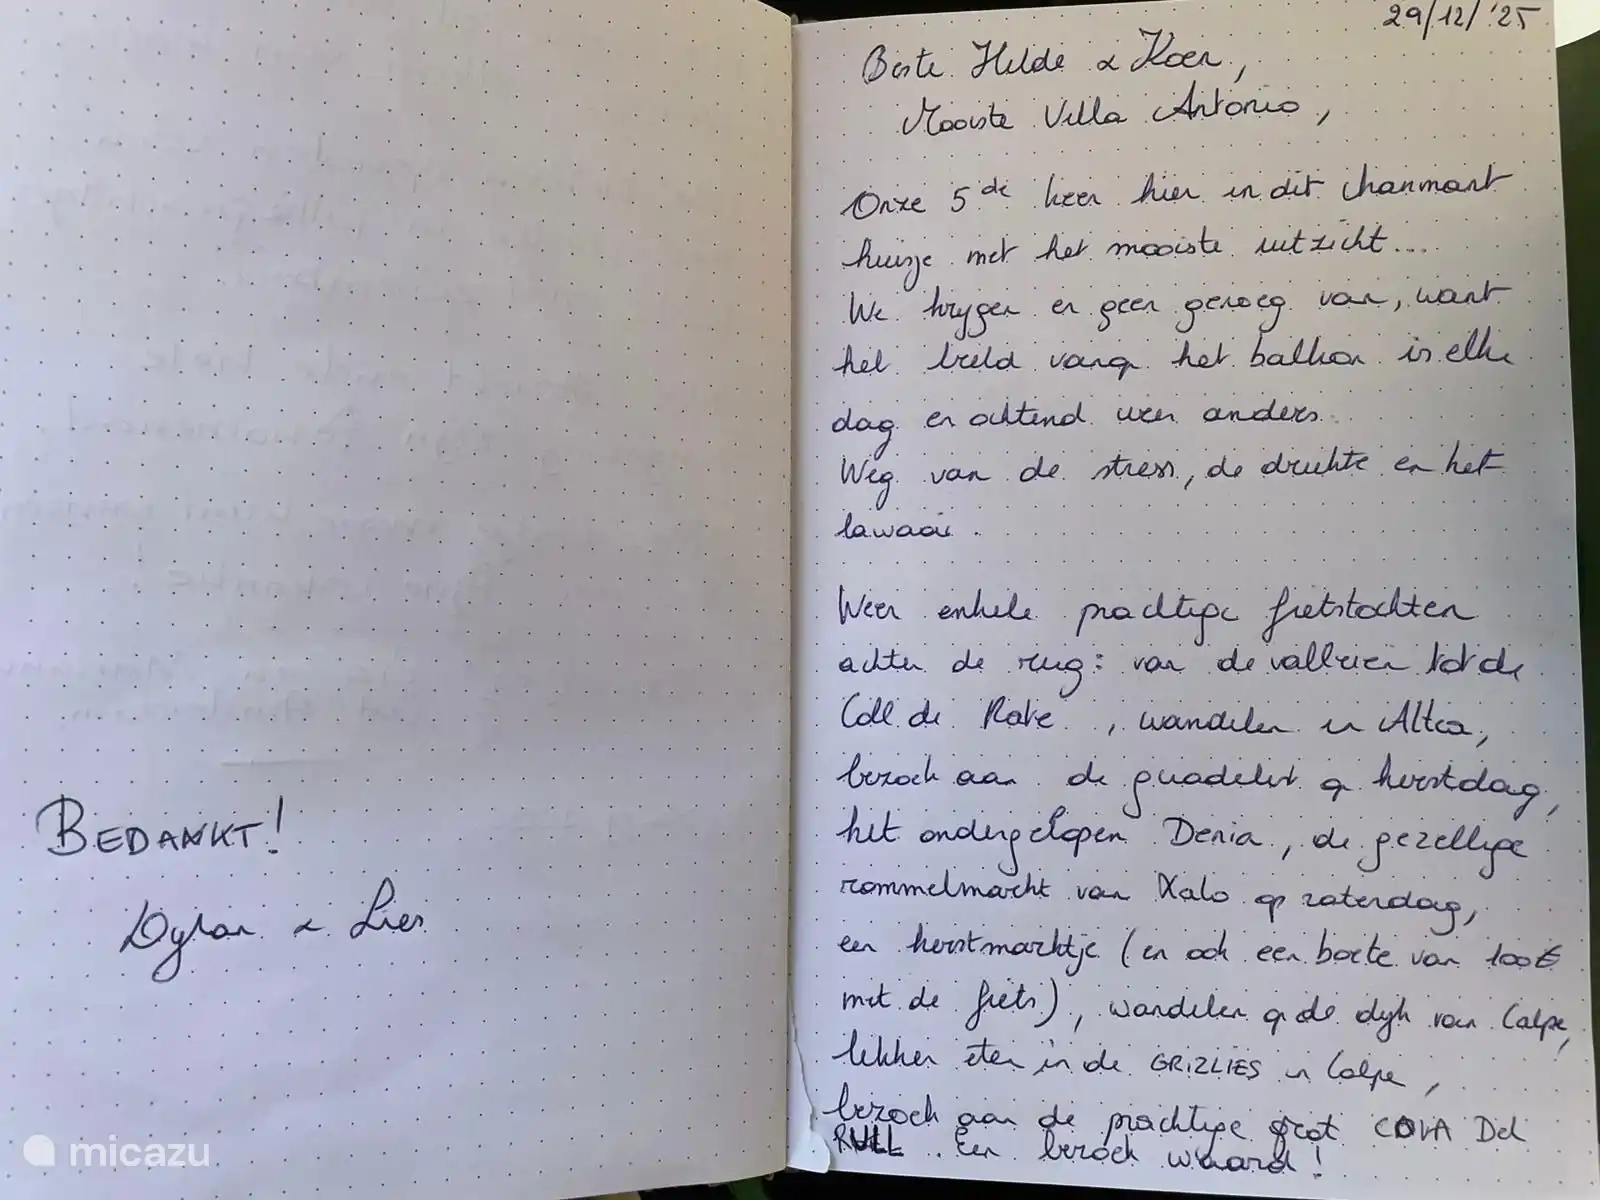 BEDANKT!
Dylan & Lies
29/12/'25
Beste Hilde & Koen,
Mooiste Villa Antonio,
Onze 5de keer hier in dit charmant
huisje met het mooiste uitzicht...
We krijgen er geen genoeg van, want
het beeld vanop het balkon is elke
dag en ochtend weer anders.
Weg van de stress, de drukte en het
lawaai.
Weer enkele prachtige fietstochten
achter de rug: van de valleien tot de
Coll de Rate, wandelen in Altea,
bezoek aan de guadelest op kerstdag,
het ondergelopen Denia, de gezellige
rommelmarkt van Xalo op zaterdag,
een kerstmarktje (en ook een boete van 100€
met de fiets), wandelen op de dijk van Calpe,
lekker eten in de GRIZLIES in Calpe,
bezoek aan de prachtige grot COVA Del
RULL. Een bezoek waard!
micazu